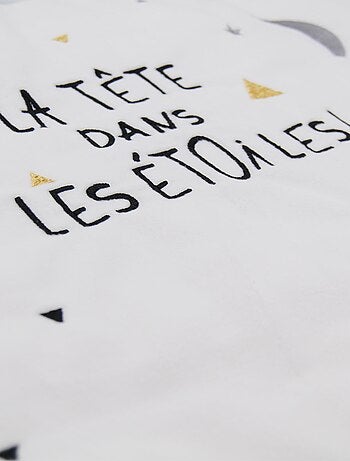 LA TÊTE
DANS
LES ÉTOiLES!